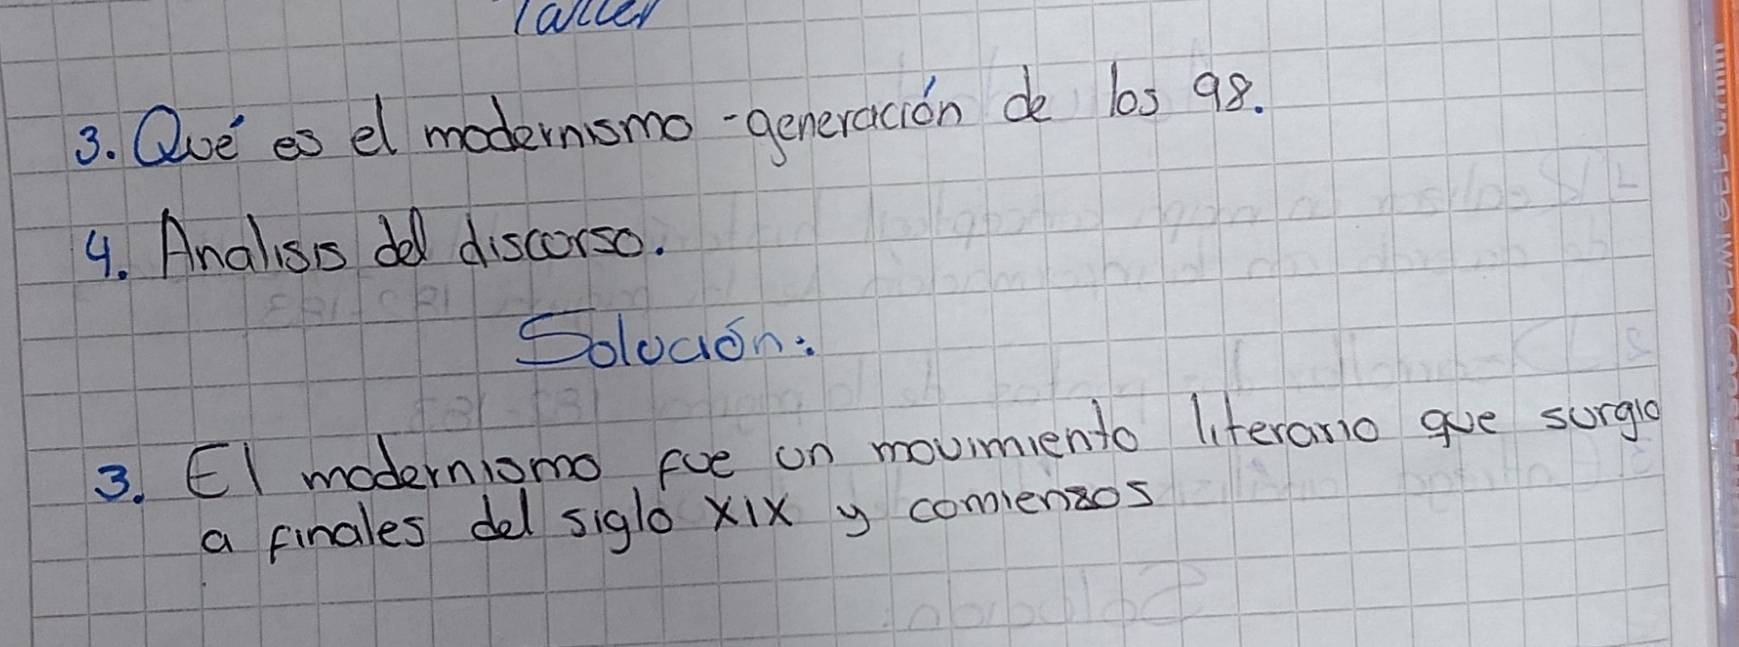 Taller
3. Qué es el modernismo - generación de los 98.
4. Analisis del discurso.
Solución:
3. El modernismo fue un movimiento literario que surgio
a finales del siglo XIX y comienzos